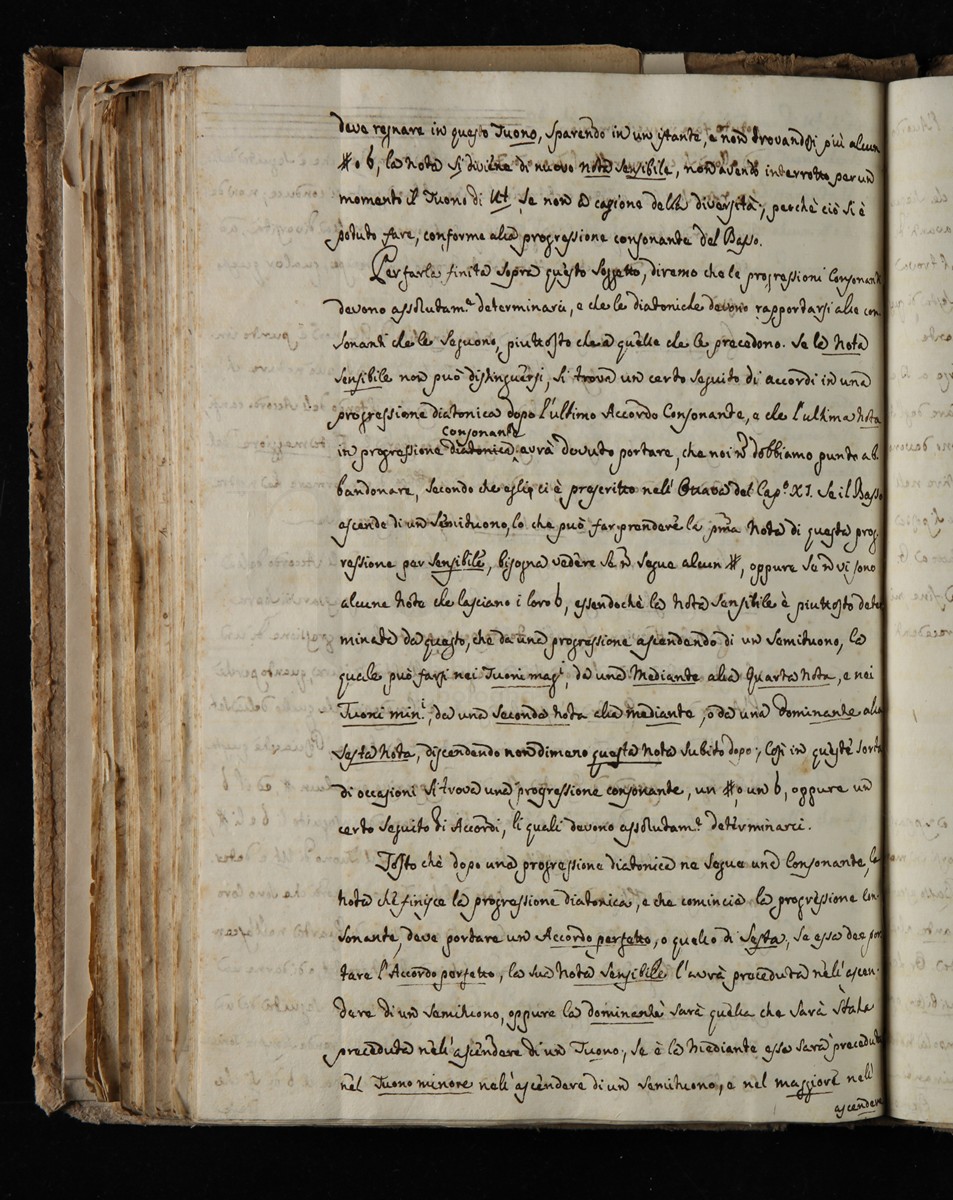 deve regnare in questo Tuono, sparendo in un istante, e non trovandosi più alcun
# o b, la nota Si diviene di nuovo nota sensibile, non essendo interrotto per un
momento il Tuono di Ut se non a cagione della diversità; perchè ciò si è
potuto fare, conforme alla progressione consonante del Basso.
Per farla finita sopra questo soggetto, diremo che le progressioni Consonanti
devono assolutam.e determinarci, e che le diatoniche devono rapportarsi alle con
sonanti che le seguono, piuttosto che a quelle che le precedono. Se la Nota
sensibile non può distinguersi, si trova un certo seguito di accordi in una
progressione diatonica dopo l'ultimo Accordo Consonante, e che l'ultima Nota
Consonante
in progressione diatonica avrà dovuto portare, che noi ñ dobbiamo punto ab
bandonare, secondo che egli ci è prescritto nell' Ottava del Cap.o XI. Se il Basso
ascende di un Semituono, lo che può far prendere la pma Nota di questa prog
ressione per sensibile, bisogna vedere se ñ segue alcun #, oppure se ñ vi sono
alcune Note che lasciano i loro b, essendochè la Nota Sensibile è piuttosto deter
minata da questo, che da una progressione ascendendo di un Semituono, la
quale può farsi nei Tuoni mag.i, da una Mediante alla Quarta Nota, e nei
Tuoni min.i, da una Seconda Nota alla mediante, o da una dominante alla
Sesta Nota, discendendo nondimeno questa Nota subito dopo; Così in queste sorta
di occasioni si trova una progressione consonante, un #, o un b, oppure un
certo seguito di Accordi, li quali devono assolutam.e determinarci.
Tosto chè dopo una progressione diatonica ne segue una Consonante, la
Nota che finisce la progressione diatonica, e che comincia la progressione Con
sonante, deve portare un Accordo perfetto, o quello di Sesta, se essa dee por
tare l'Accordo perfetto, la sua Nota Sensibile l'avrà preceduta nell' ascen-
dere di un Semituono, oppure la dominante sarà quella che sarà stata
preceduta nell' ascendere di un Tuono; se è la Mediante essa sarà preceduta
nel Tuono minore nell' ascendere di un Semituono, e nel maggiore nell'
ascendere